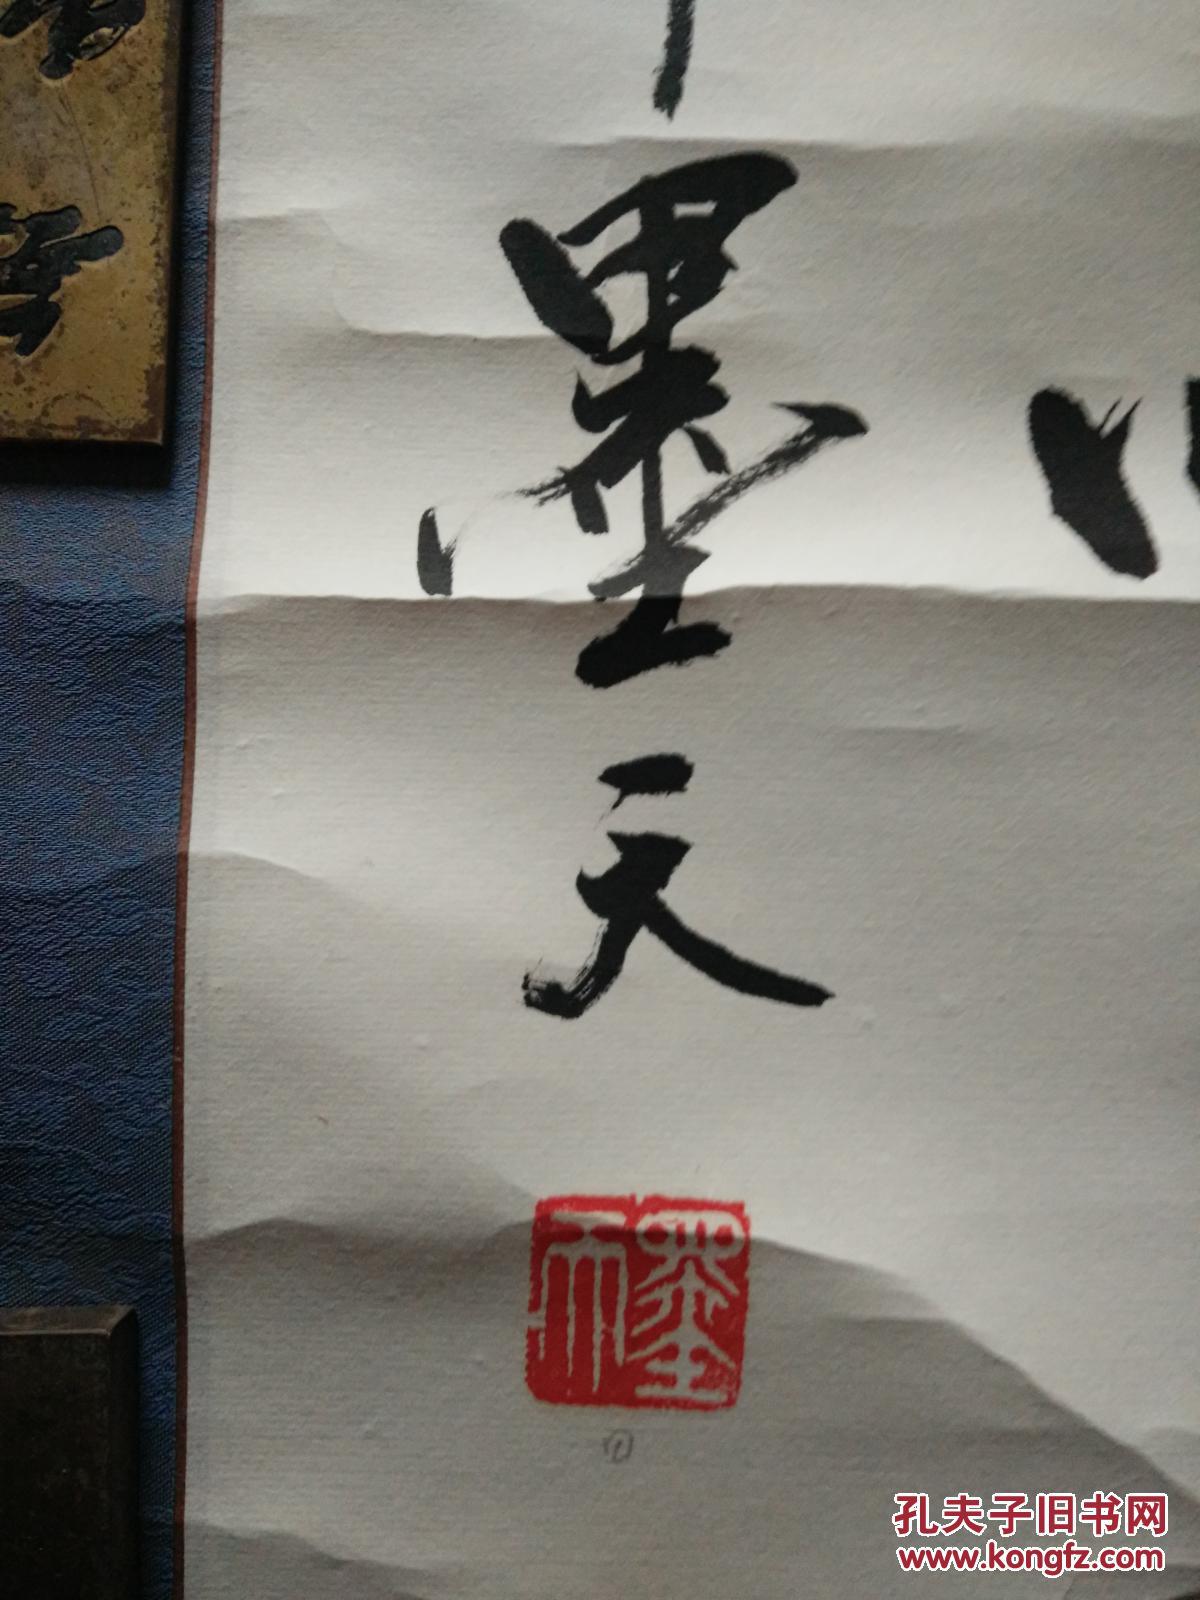 墨天
墨天
孔夫子旧书网
www.kongfz.com